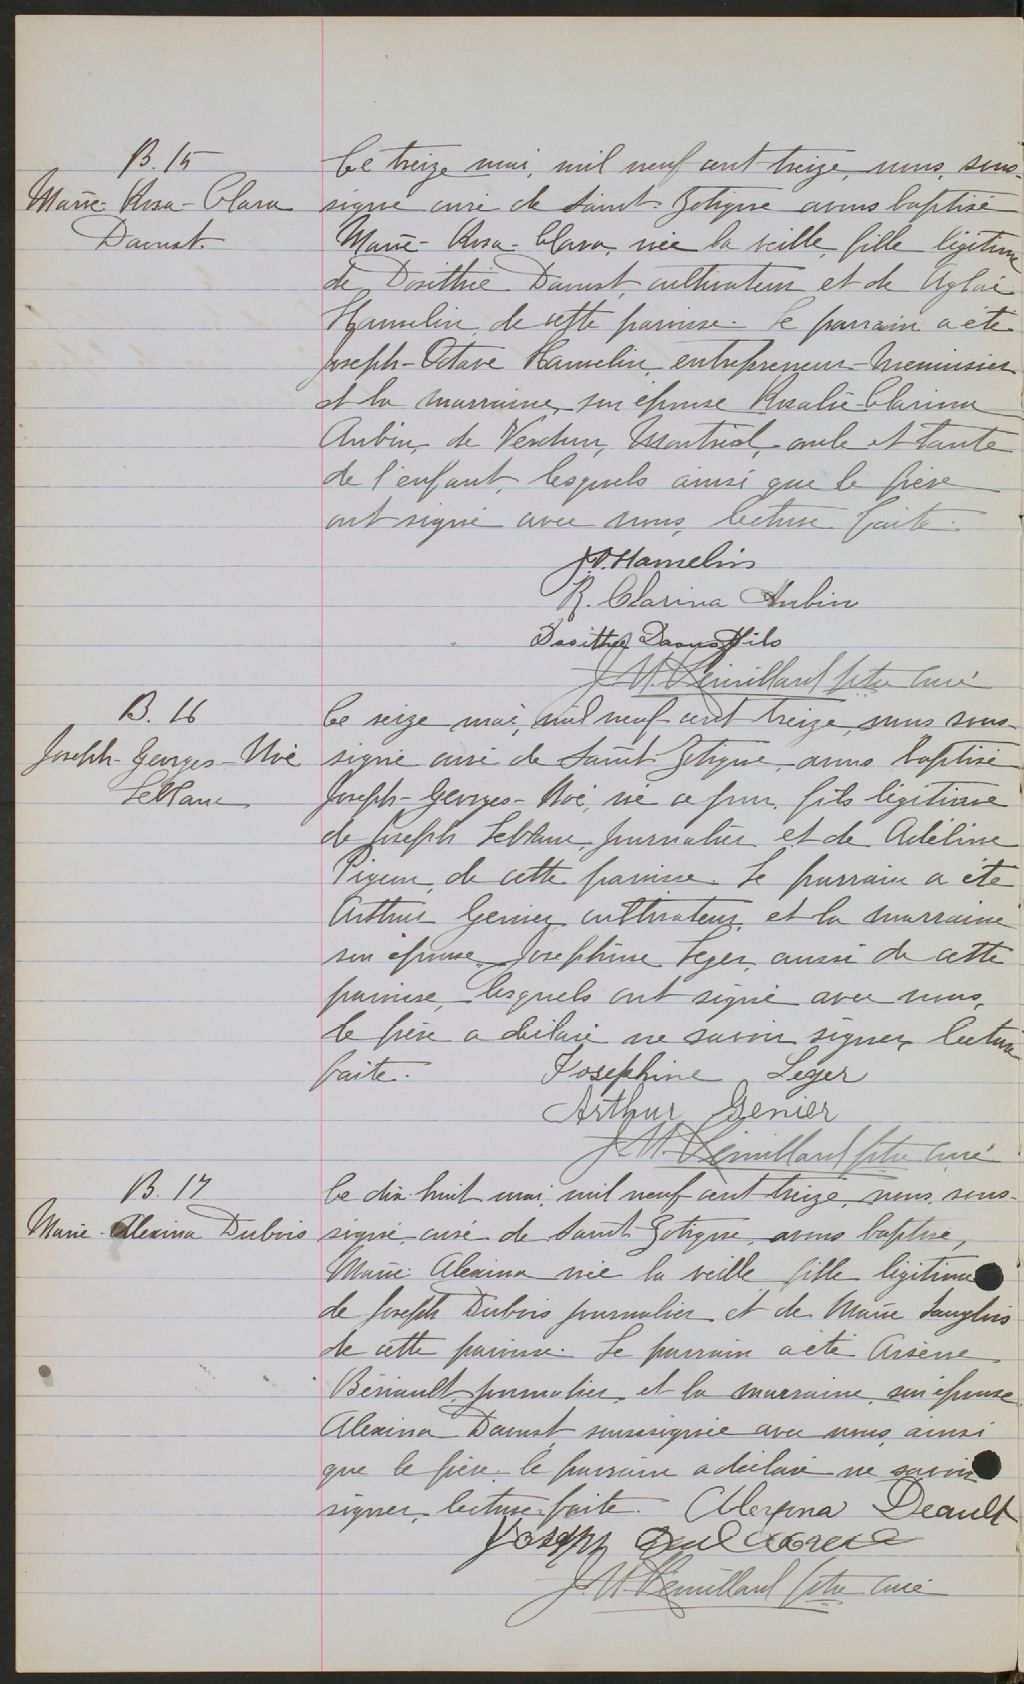 B. 15
Marie-Rosa-Clara
Daoust.
Ce treize mai, mil neuf cent treize, nous, sous-
signé curé de Saint-Zotique avons baptisé
Marie-Rosa-Clara, née la veille, fille légitime
de Dosithée Daoust, cultivateur et de Aglaé
Hamelin, de cette paroisse. Le parrain a été
Joseph-Octave Hamelin, entrepreneur-menuisier
et la marraine, son épouse Rosalie Clarina
Aubin, de Verdun, Montréal, oncle et tante
de l'enfant, lesquels ainsi que le père
ont signé avec nous, lecture faite.
J.O. Hamelin
R. Clarina Aubin
Dosithé Daoust fils
ptre curé
B. 16
Joseph-Georges-Noé
Leblanc
Ce seize mai, mil neuf cent treize, nous sous-
signé curé de Saint-Zotique, avons baptisé
Joseph-Georges-Noé, né ce jour, fils légitime
de Joseph Leblanc, journalier et de Adéline
Pigeon, de cette paroisse. Le parrain a été
Arthur Genier, cultivateur, et la marraine
son épouse, Joséphine Leger, aussi de cette
paroisse, lesquels ont signé avec nous,
le père a déclaré ne savoir signer, lecture
faite.
Josephine Leger
Arthur Genier
ptre curé
B. 17
Marie-Alexina Dubois
Ce dix-huit mai, mil neuf cent treize, nous, sous-
signé, curé de Saint-Zotique, avons baptisé,
Marie-Alexina née la veille fille légitime
de Joseph Dubois journalier et de Marie Langlois
de cette paroisse. Le parrain a été Arsène
Bériault, journalier, et la marraine, son épouse,
Alexina Daoust soussignée avec nous, ainsi
que le père, le parrain a déclaré ne savoir
signer, lecture faite.
Deault
Joseph
ptre curé